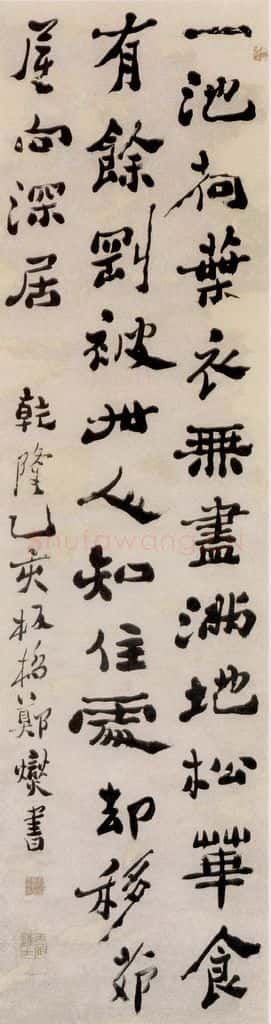 一池荷葉衣無盡滿地松華食
有餘剛被世人知住處却移茆
屋向深居
乾隆乙亥板橋鄭燮書